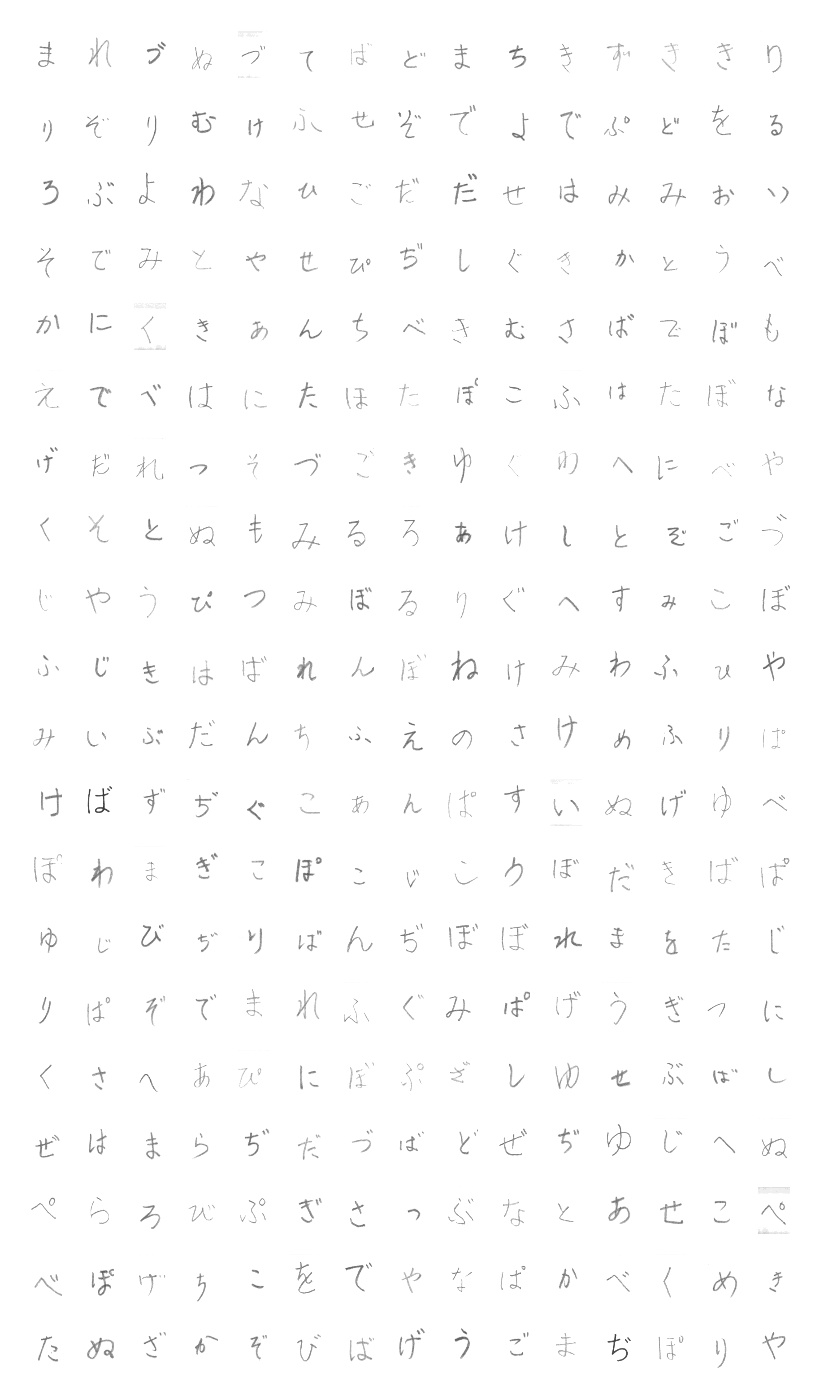 まれづぬづてばどまちきずききり
りぞりむけふせぞでよでぷどをる
ろぶよわなひごだだせはみみおい
そでみとやせぴぢしぐきかとうべ
かにくきあんちべきむさばでぼも
えでべはにたほたぽこふはたぼな
げだれっそづごきゆぐゆへにべや
くそとぬもみるろあけしとぞごづ
じやうぴつみぼるりぐへすみこぼ
ふじきはばれんぼねけみわふひや
みいぶだんちふえのさけめふりぱ
けばずぢぐこあんぱすいぬげゆべ
ぽわまぎこぽこじしうぼだきばぱ
ゆじびぢりばんぢぼぼれまをたじ
りぱぞでまれふぐみぱげうぎつに
くさへあぴにぼぷざしゆせぶばし
ぜはまらぢだづばどぜぢゆじへぬ
ぺらろびぷぎさっぶなとあせこぺ
べぽげちこをでやなぱかべくめき
たぬざかぞびばげうごまぢぽりや